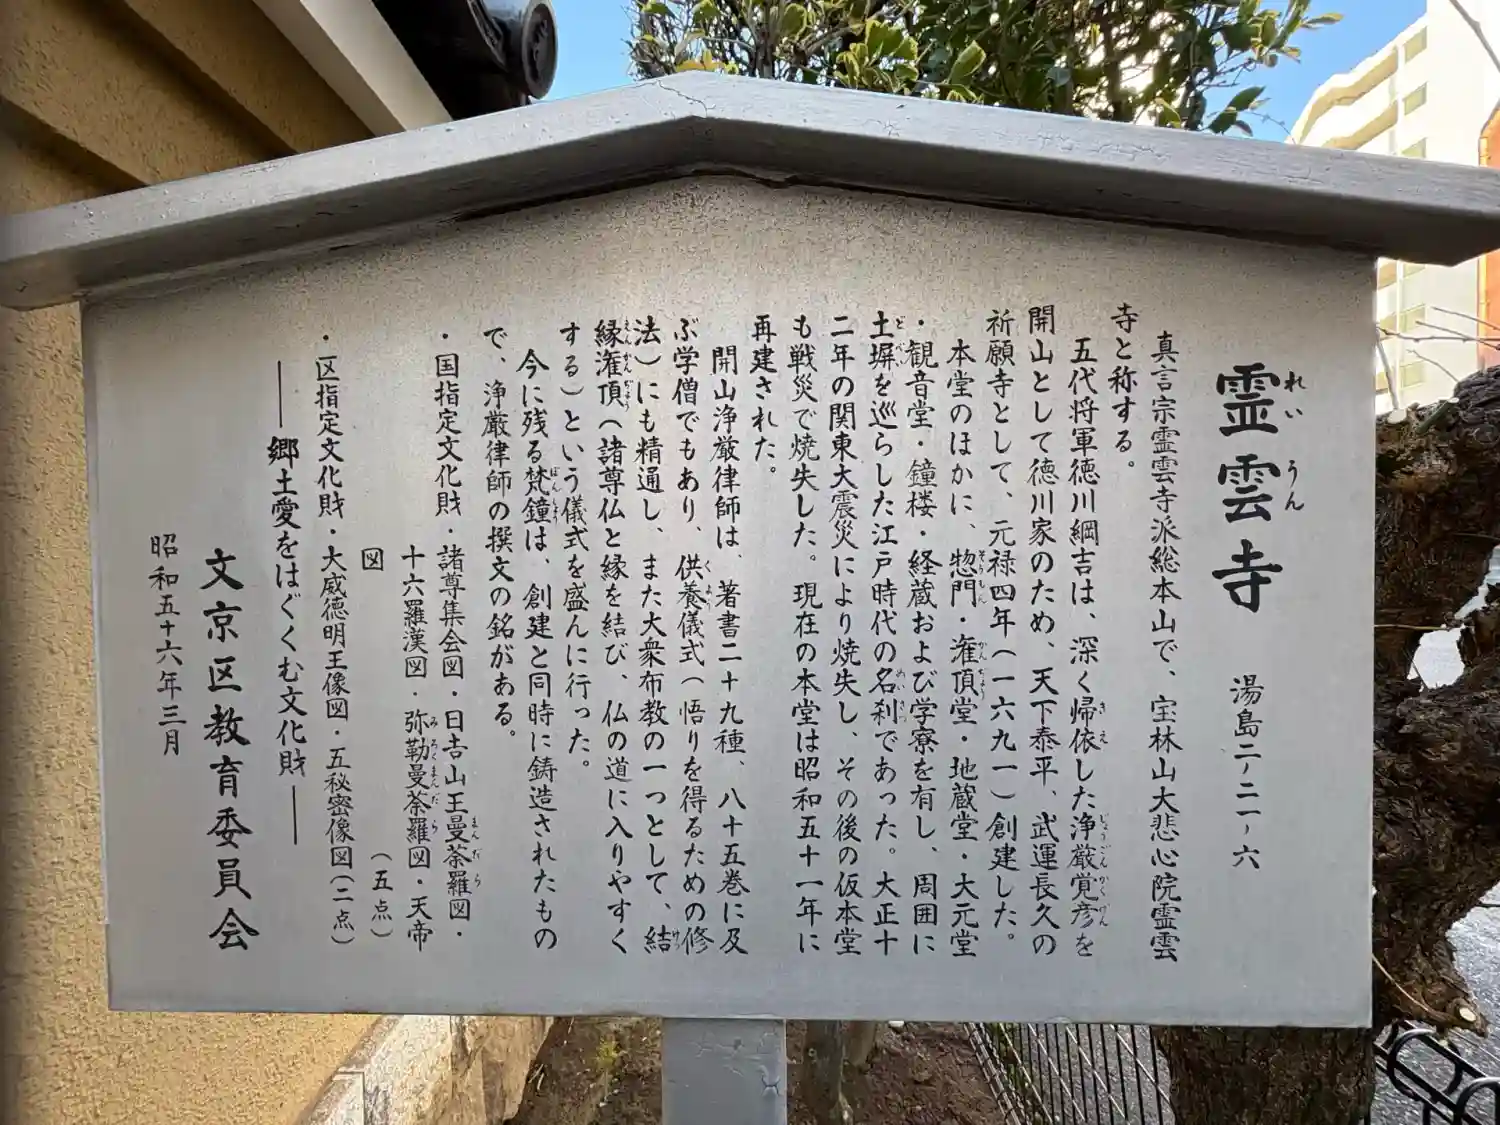 霊雲寺 湯島二ー二一ー六
真言宗霊雲寺派総本山で、宝林山大悲心院霊雲
寺と称する。
五代将軍徳川綱吉は、深く帰依した浄厳覚彦を
開山として徳川家のため、天下泰平、武運長久の
祈願寺として、元禄四年(一六九一)創建した。
本堂のほかに、惣門・潅頂堂・地蔵堂・大元堂
・観音堂・鐘楼・経蔵および学寮を有し、周囲に
土塀を巡らした江戸時代の名刹であった。大正十
二年の関東大震災により焼失し、その後の仮本堂
も戦災で焼失した。現在の本堂は昭和五十一年に
再建された。
開山浄厳律師は、著書二十九種、八十五巻に及
ぶ学僧でもあり、供養儀式(悟りを得るための修
法)にも精通し、また大衆布教の一つとして、結
縁潅頂(諸尊仏と縁を結び、仏の道に入りやすく
する)という儀式を盛んに行った。
今に残る梵鐘は、創建と同時に鋳造されたもの
で、浄厳律師の撰文の銘がある。
・国指定文化財・諸尊集会図・日吉山王曼荼羅図・
十六羅漢図・弥勒曼荼羅図・天帝
図 (五点)
・区指定文化財・大威徳明王像図・五秘密像図(二点)
――郷土愛をはぐくむ文化財――
文京区教育委員会
昭和五十六年三月